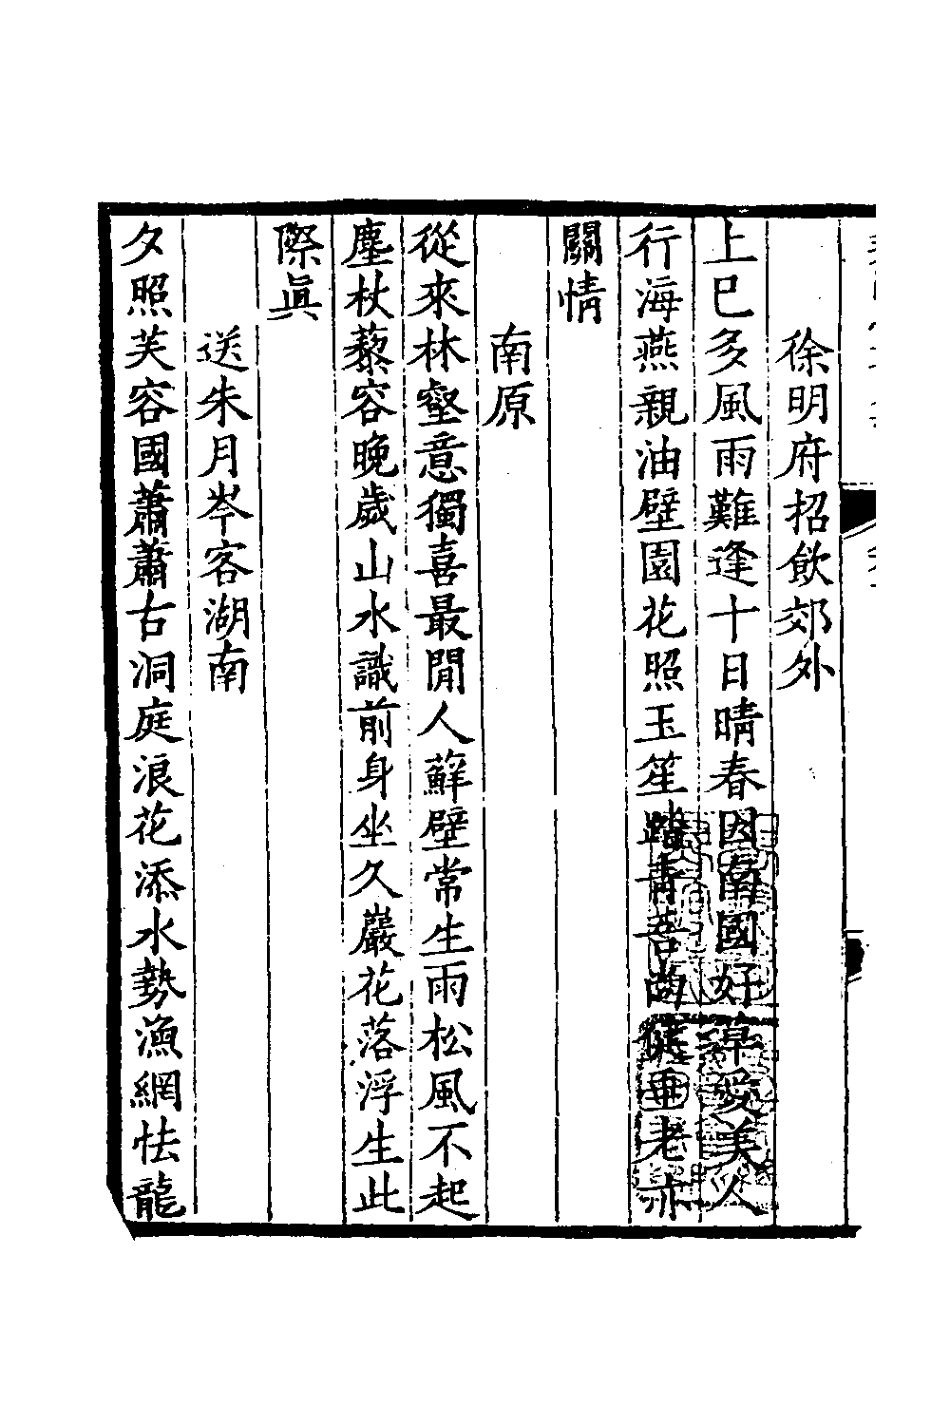 徐明府招飲郊外
上巳多風雨難逢十日晴春因南國好草愛美人
行海燕親油壁園花照玉笙踏青吾尚健垂老亦
關情
南原
從來林壑意獨喜最閒人蘚壁常生雨松風不起
塵杖藜容晚歲山水識前身坐久巖花落浮生此
際眞
送朱月岑客湖南
夕照芙容國蕭蕭古洞庭浪花添水勢漁網怯龍